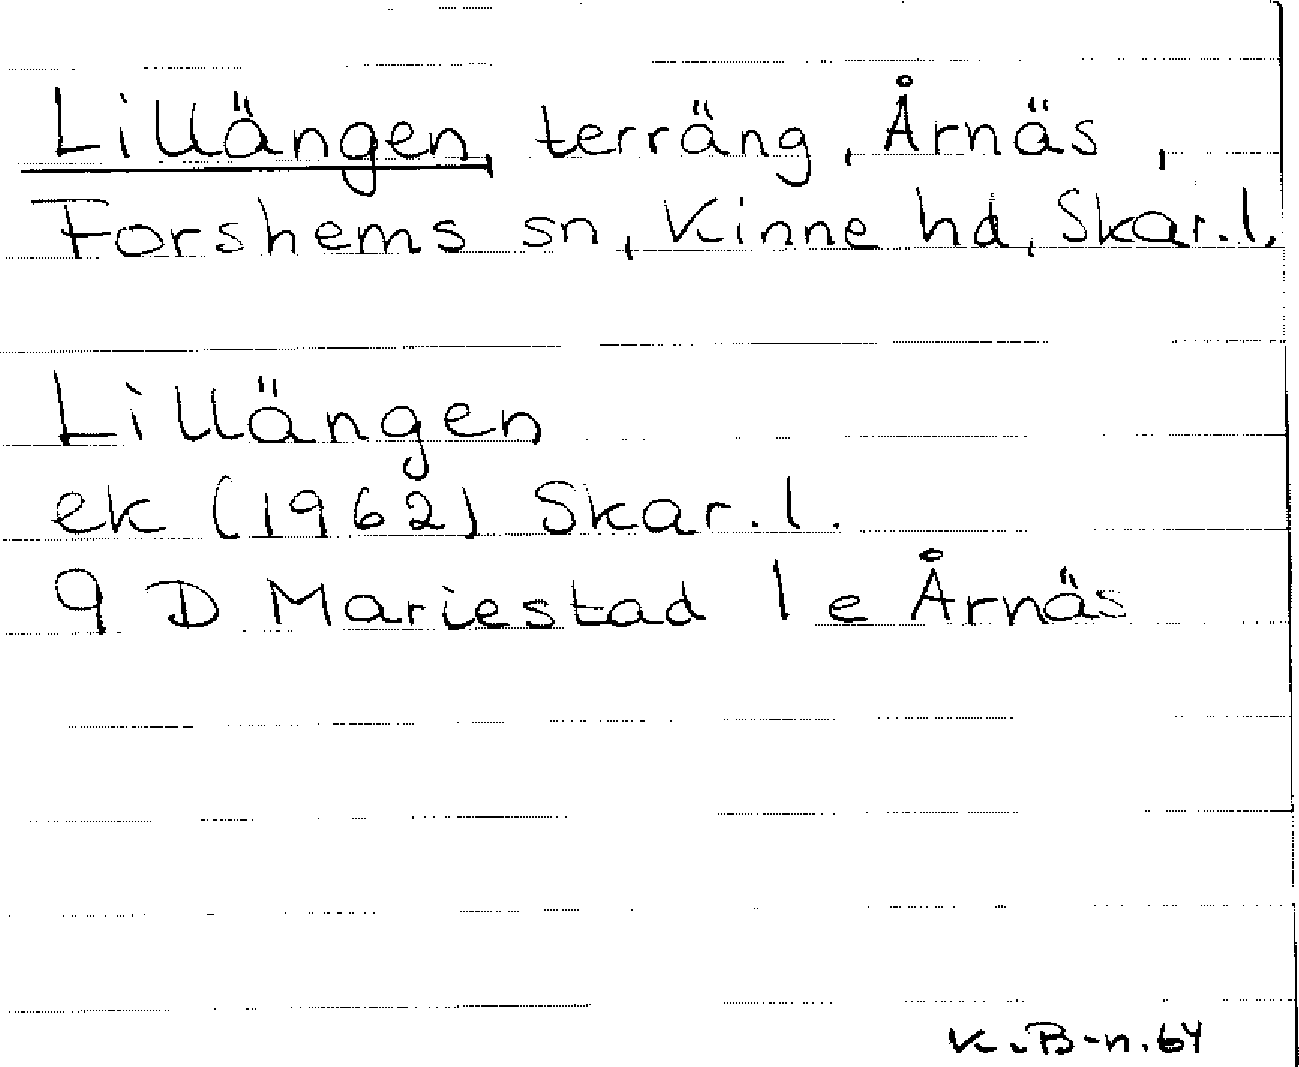 Lillängen, terräng, Årnäs,
Forshems sn, Kinne hd, Skar.l.
Lillängen
ek (1962) Skar.l.
9 D Mariestad 1 e Årnäs
K.B-n.64